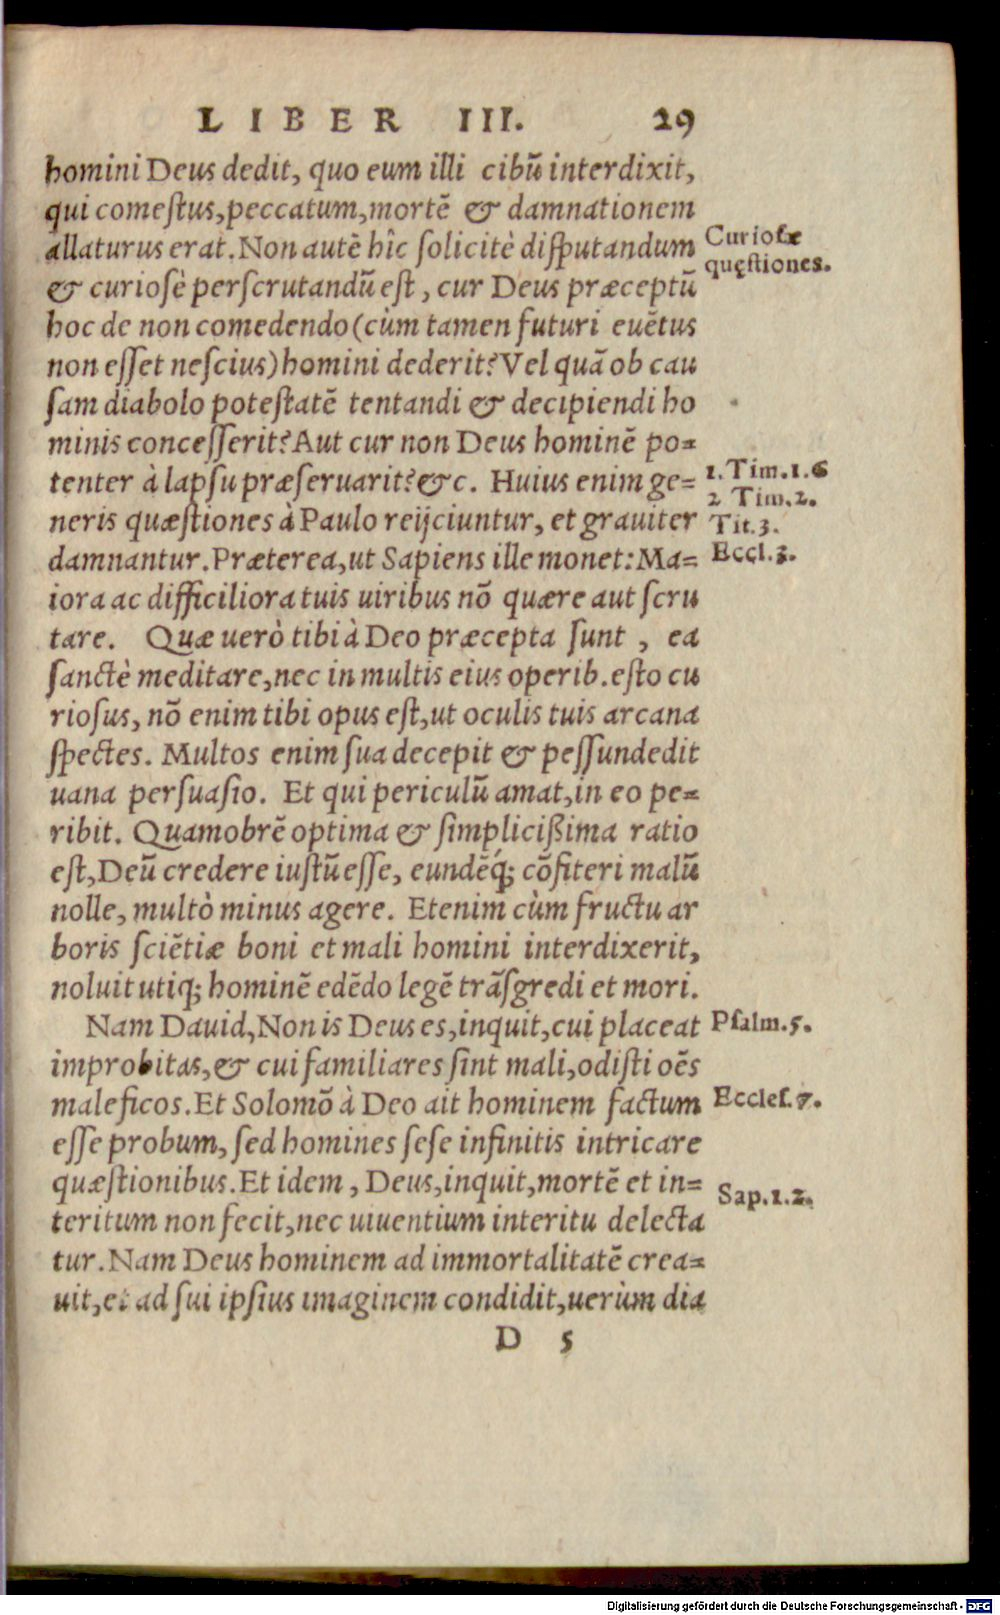 LIBER III. 29
homini Deus dedit, quo eum illi cibũ interdixit,
qui comeſtus, peccatum, mortẽ & damnationem
allaturus erat. Non autẽ hîc ſolicitè diſputandum
Curioſæ
quęſtiones.
& curiosè perſcrutandũ eſt, cur Deus præceptũ
hoc de non comedendo (cùm tamen futuri euẽtus
non eſſet neſcius) homini dederit? Vel quã ob cau
ſam diabolo poteſtatẽ tentandi & decipiendi ho
minis conceſſerit? Aut cur non Deus hominẽ po-
tenter à lapſu præſeruarit? &c. Huius enim ge-
1. Tim. 1. 6
2 Tim. 2.
neris quæſtiones à Paulo reijciuntur, et grauiter
Tit. 3.
damnantur. Præterea, ut Sapiens ille monet: Ma-
Eccl. 3.
iora ac difficiliora tuis uiribus nõ quære aut ſcru
tare. Quæ uerò tibi à Deo præcepta ſunt, ea
ſanctè meditare, nec in multis eius operib. eſto cu
rioſus, nõ enim tibi opus eſt, ut oculis tuis arcana
ſpectes. Multos enim ſua decepit & peſſundedit
uana perſuaſio. Et qui periculũ amat, in eo pe-
ribit. Quamobrẽ optima & ſimplicißima ratio
eſt, Deũ credere iuſtũ eſſe, eundẽq́; cõfiteri malũ
nolle, multò minus agere. Etenim cùm fructu ar
boris ſciẽtiæ boni et mali homini interdixerit,
noluit utiq; hominẽ edẽdo legẽ trãſgredi et mori.
Nam Dauid, Non is Deus es, inquit, cui placeat
Pſalm. 5.
improbitas, & cui familiares ſint mali, odiſti oẽs
maleficos. Et Solomõ à Deo ait hominem factum
Eccleſ. 7.
eſſe probum, ſed homines ſeſe infinitis intricare
quæſtionibus. Et idem, Deus, inquit, mortẽ et in-
Sap. 1. 2.
teritum non fecit, nec uiuentium interitu delecta
tur. Nam Deus hominem ad immortalitatẽ crea-
uit, et ad ſui ipſius imaginem condidit, uerùm dia
D 5
Digitalisierung gefördert durch die Deutsche Forschungsgemeinschaft - DFG